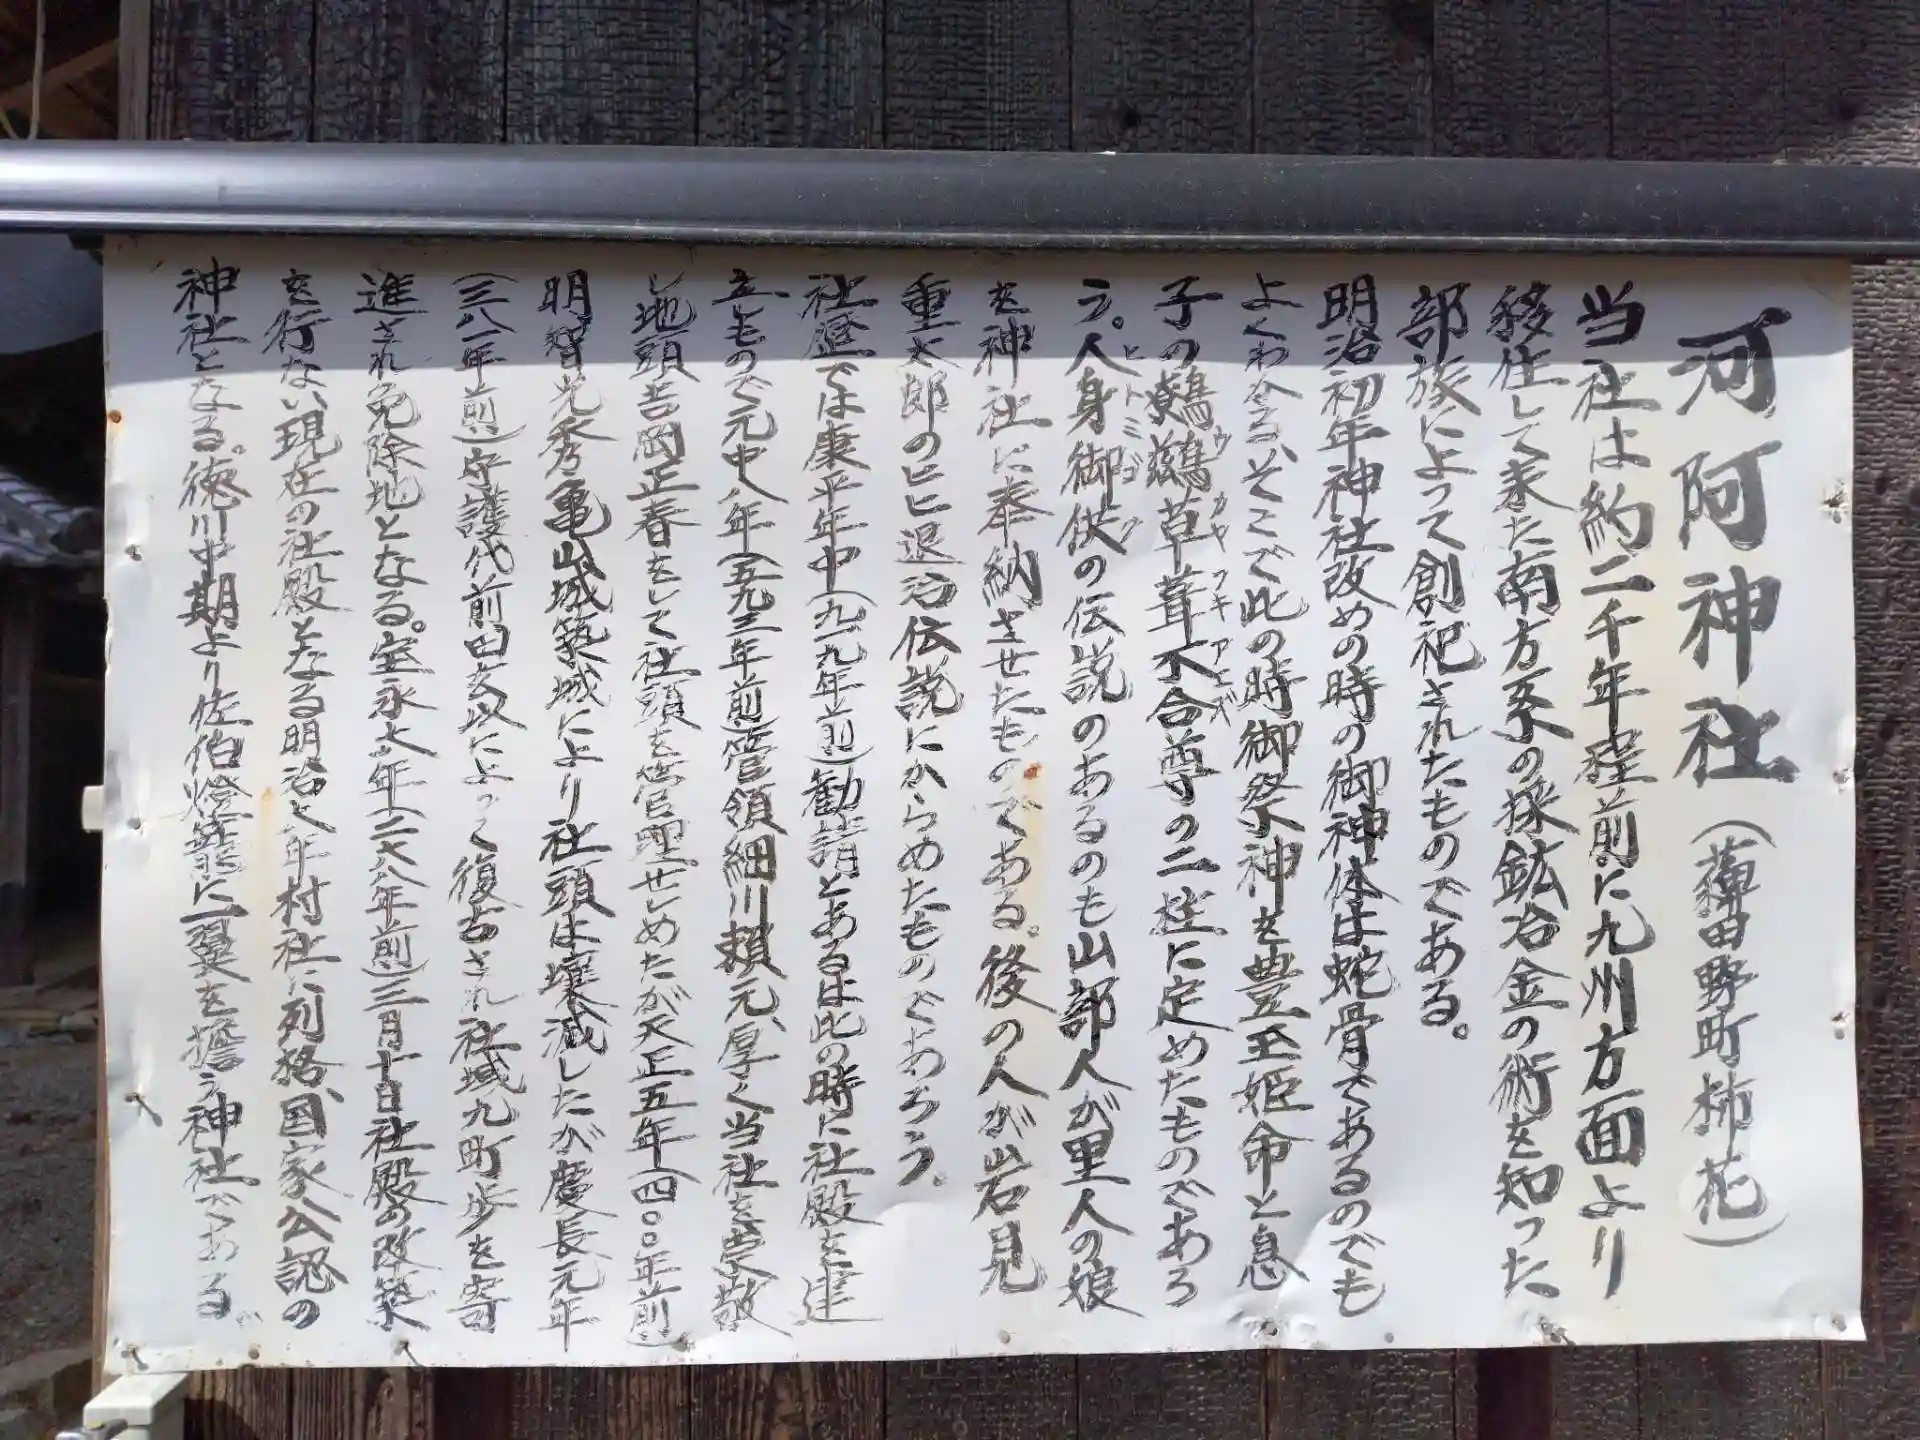 河阿神社（薭田野町柿花）
当社は約二千年程前に九州方面より
移住して来た南方系の採鉱冶金の術を知った
部族によって創祀されたものである。
明治初年神社改めの時の御神体は蛇骨であるのでも
よくわかる、そこで此の時御祭神を豊玉姫命と息
子の鵜鶿草葺不合尊の二柱に定めたものであろ
ウ カヤ フキ アエズ
う。人身御供の伝説のあるのも山部人が里人の娘
ヒトミゴク
を神社に奉納させたものである。後の人が岩見
重太郎のヒヒ退治伝説にからめたものであろう。
社歴では康平年中（九一九年前）勧請とあるは此の時に社殿を建
立もので元中八年（五九三年前）管領細川頼元、厚く当社を崇敬
し地頭吉岡正春をして社頭を管理せしめたが天正五年（四〇〇年前）
明智光秀亀山城築城により社頭は壊滅したが慶長元年
（三八一年前）守護代前田玄以によって復古され社域九町歩を寄
進され免除地となる。宝永七年（二七八年前）三月十日社殿の改築
を行ない現在の社殿となる明治七年村社に列格、国家公認の
神社となる。徳川中期より佐伯燈籠に一翼を擔う神社である。